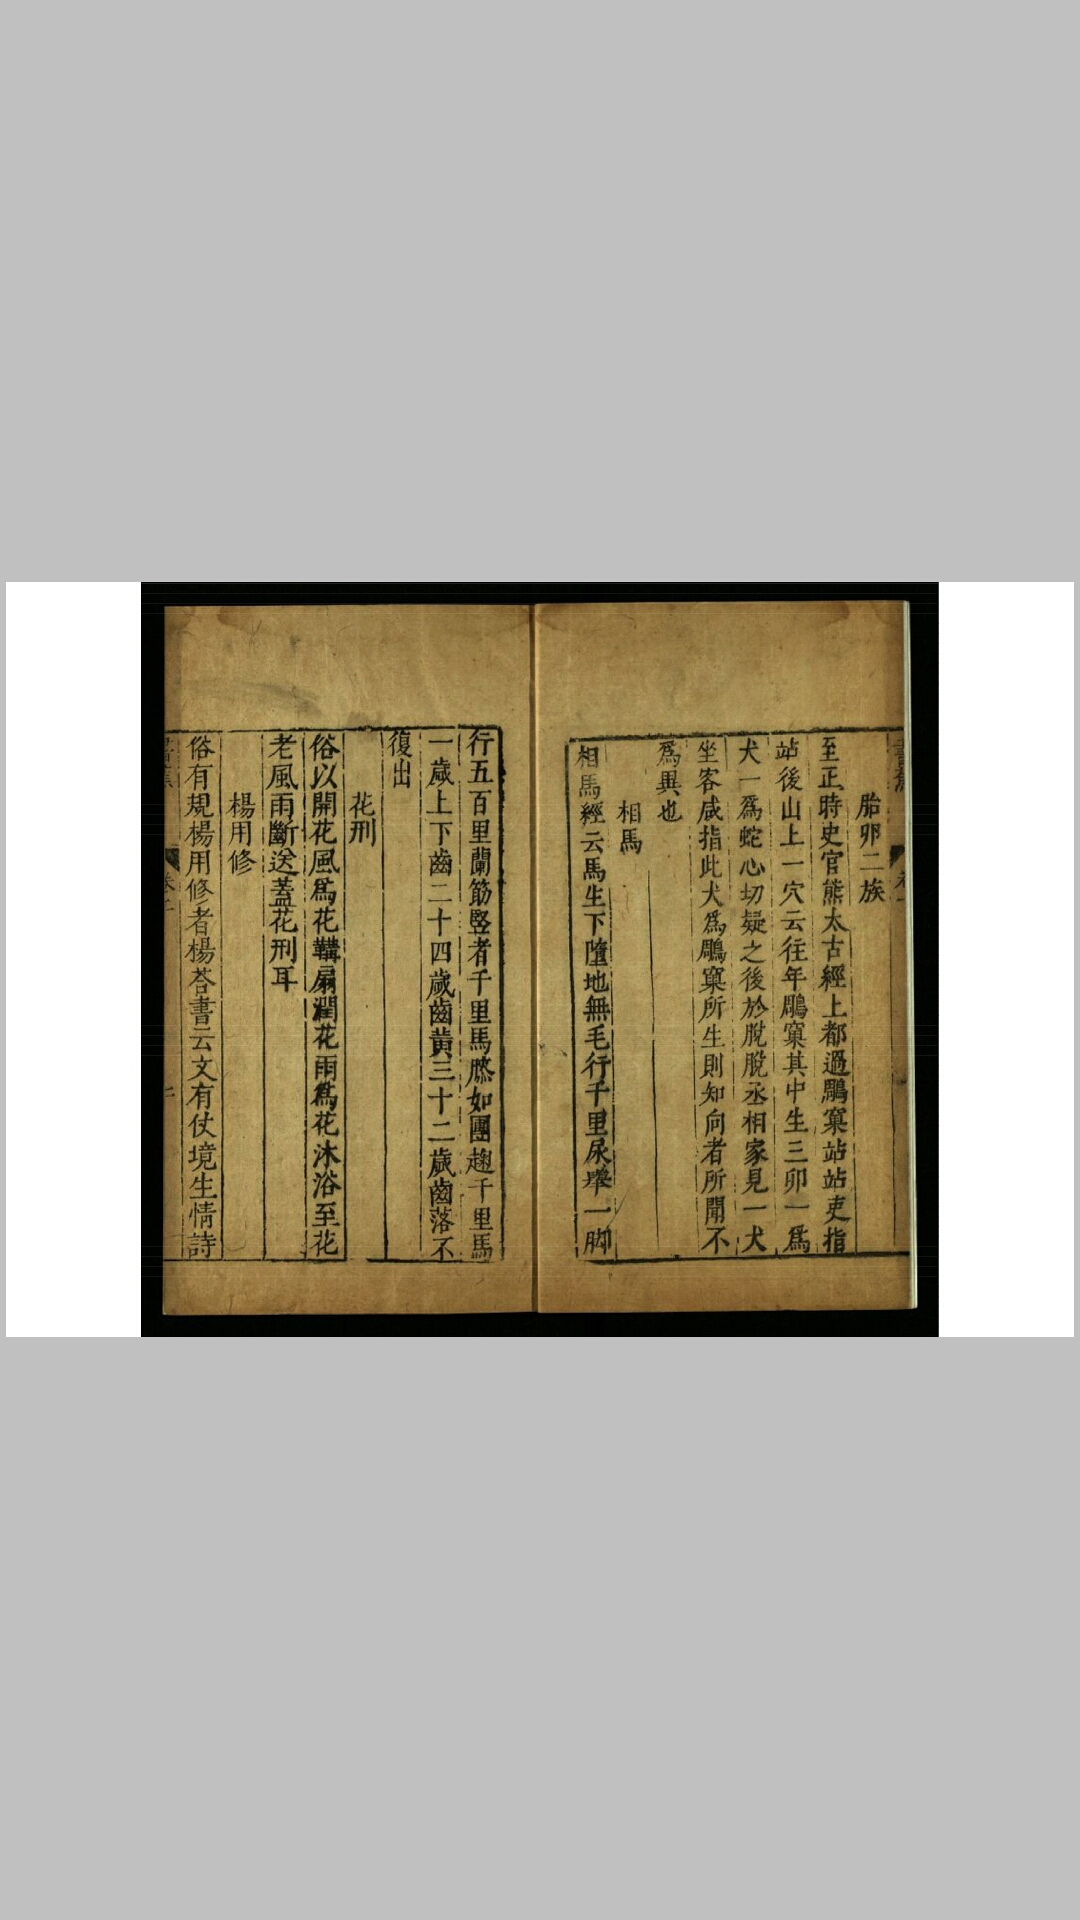 胎卵二族
至正時史官熊太古經上都過鵰窠站站吏指
站後山上一穴云往年鵰窠其中生三卵一爲
犬一爲蛇心切疑之後於脫脫丞相家見一犬
坐客咸指此犬爲鵰窠所生則知向者所聞不
爲異也
相馬
相馬經云馬生下墮地無毛行千里尿舉一脚
行五百里蘭筋竪者千里馬膝如團麯千里馬
一歲上下齒二十四歲齒黃三十二歲齒落不
復出
花刑
俗以開花風爲花鞴扇潤花雨爲花沐浴至花
老風雨斷送蓋花刑耳
楊用修
俗有規楊用修者楊荅書云文有仗境生情詩